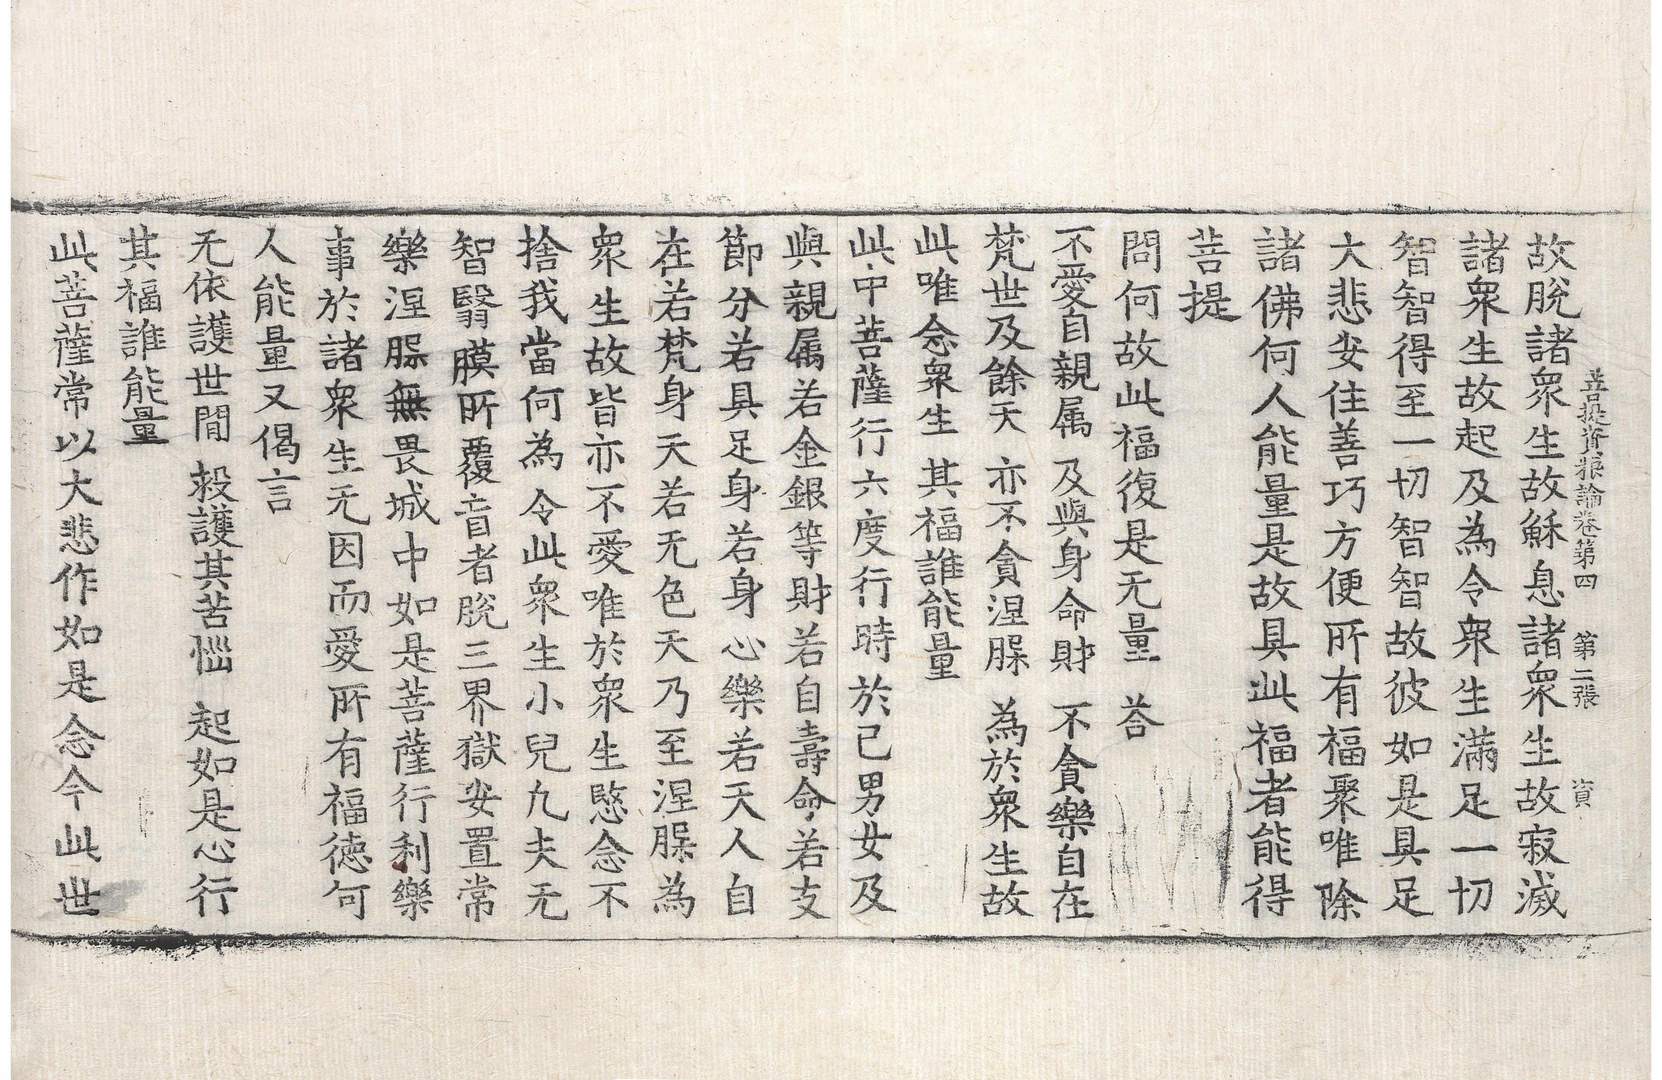 菩提資粮論卷第四 第二張 資
故脫諸衆生故穌息諸衆生故寂滅
諸衆生故起及為令衆生滿足一切
智智得至一切智智故彼如是具足
大悲安住善巧方便所有福聚唯除
諸佛何人能量是故具此福者能得
菩提
問何故此福復是无量 荅
不愛自親属 及與身命財 不貪樂自在
梵世及餘天 亦不貪涅槃 為於衆生故
此唯念衆生 其福誰能量
此中菩薩行六度行時於己男女及
與親属若金銀等財若自壽命若支
節分若具足身若身心樂若天人自
在若梵身天若无色天乃至涅槃為
衆生故皆亦不愛唯於衆生愍念不
捨我當何為令此衆生小兒凡夫无
智翳膜所覆盲者脫三界獄安置常
樂涅槃無畏城中如是菩薩行利樂
事於諸衆生无因而愛所有福徳何
人能量又偈言
无依護世間 救護其苦惱 起如是心行
其福誰能量
此菩薩常以大悲作如是念今此世